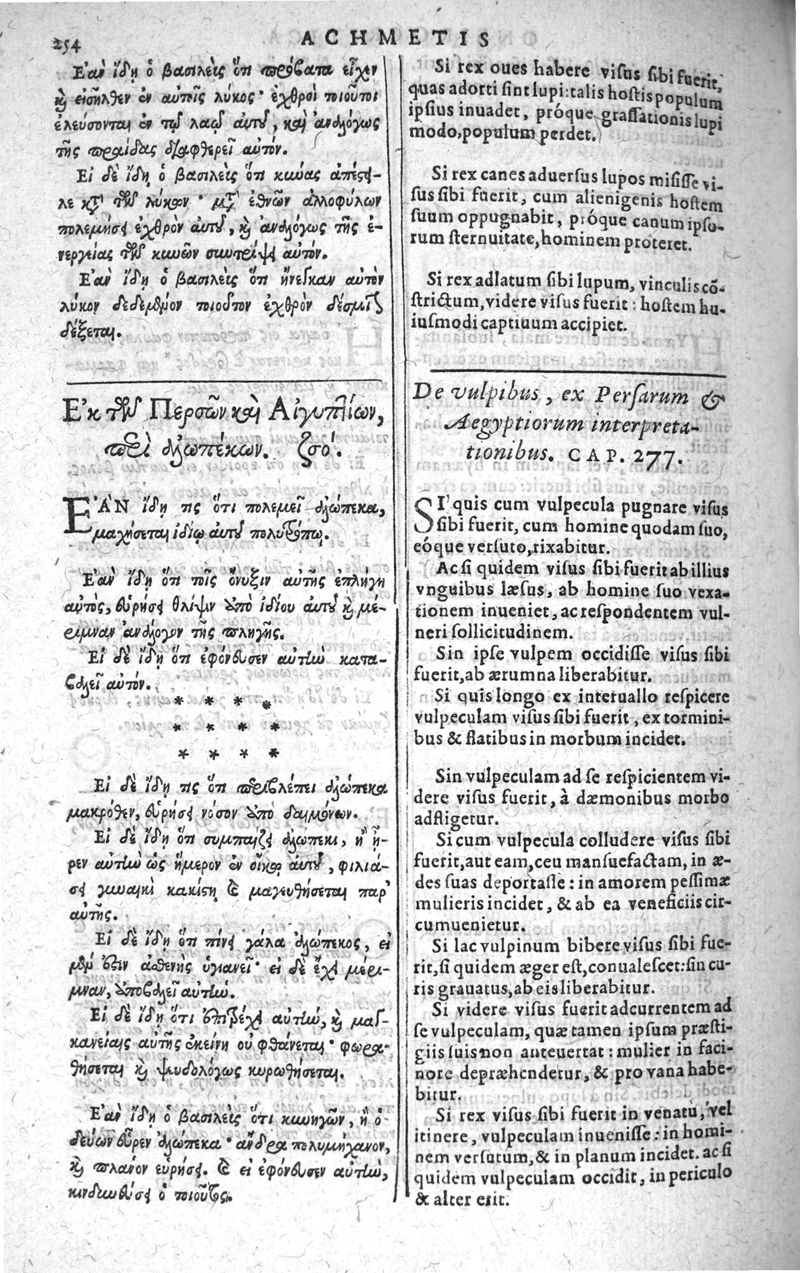 254
ACHMETIS
Ἐὰν ἴδῃ ὁ βασιλεὺς ὅτι πρόβατα εἶχεν
καὶ εἰσῆλθεν ἐν αὐτοῖς λύκος· ἐχθροὶ τοιοῦτοι
ἐλεύσονται ἐν τῷ λαῷ αὐτοῦ, καὶ ἀναλόγως
τῆς πραίδας διαφθερεῖ αὐτόν.
Εἰ δὲ ἴδῃ ὁ βασιλεὺς ὅτι κύνας ἀπέστει-
λε κατὰ τῶν λύκων· μετὰ ἐθνῶν ἀλλοφύλων
πολεμήσει ἐχθρὸν αὐτοῦ, καὶ ἀναλόγως τῆς ἐ-
νεργείας τῶν κυνῶν συντρίψει αὐτόν.
Ἐὰν ἴδῃ ὁ βασιλεὺς ὅτι ἤνεγκαν αὐτὸν
λύκον δεδεμένον τοιοῦτον ἐχθρὸν δέσμιον
δέξεται.
Ἐκ τῶν Περσῶν καὶ Αἰγυπτίων,
περὶ ἀλωπέκων.
ΕΑΝ ἴδῃ τις ὅτι πολεμεῖ ἀλώπεκα,
μαχήσεται ἰδίῳ αὐτοῦ πολυτρόπῳ.
Ἐὰν ἴδῃ ὅτι τοῖς ὄνυξιν αὐτῆς ἐπλήγη
αὐτὸς, εὑρήσει θλίψιν ὑπὸ ἰδίου αὐτοῦ καὶ μέ-
ριμναν ἀνάλογον τῆς πληγῆς.
Εἰ δὲ ἴδῃ ὅτι ἐφόνευσεν αὐτὴν κατα-
βαλεῖ αὐτόν.
* * *
* * * *
* * * *
Εἰ δὲ ἴδῃ τις ὅτι περιβλέπει ἀλώπεκα
μακρόθεν, εὑρήσει νόσον ὑπὸ δαιμόνων.
Εἰ δὲ ἴδῃ ὅτι συμπαίζει ἀλώπεκι, ἢ ἦ-
ρεν αὐτὴν ὡς ἥμερον ἐν οἴκῳ αὐτοῦ, φιλιά-
σει γυναικὶ κακίστῃ καὶ μαγευθήσεται παρ'
αὐτῆς.
Εἰ δὲ ἴδῃ ὅτι πίνει γάλα ἀλώπεκος, εἰ
μὲν ἔστιν ἀσθενὴς ὑγιανεῖ· εἰ δὲ ἔχει μέρι-
μναν, ἀποβαλεῖ αὐτήν.
Εἰ δὲ ἴδῃ ὅτι ἐπιτρέχει αὐτὴν, καὶ μαγ-
γανείαις αὐτῆς ἐκείνη οὐ φθάνεται· φωρα-
θήσεται καὶ ψευδολόγως κυρωθήσεται.
Ἐὰν ἴδῃ ὁ βασιλεὺς ὅτι κυνηγῶν, ἢ ὁ-
δεύων εὗρεν ἀλώπεκα· ἄνδρα πολυμήχανον,
καὶ πλάνον εὑρήσει. καὶ εἰ ἐφόνευσεν αὐτὴν,
κινδυνεύσει ὁ τοιοῦτος.
Si rex oues habere visus sibi fuerit,
quas adorti sint lupi: talis hostis populum
ipsius inuadet, próque grassationis lupi
modo, populum perdet.
Si rex canes aduersus lupos misisse vi-
sus sibi fuerit, cum alienigenis hostem
suum oppugnabit, próque canum ipso-
rum sternuitate, hominem proteret.
Si rex adlatum sibi lupum, vinculis cō-
strictum, videre visus fuerit: hostem hu-
iusmodi captiuum accipiet.
De vulpibus, ex Persarum &
Aegyptiorum interpreta-
tionibus. CAP. 277.
SI quis cum vulpecula pugnare visus
sibi fuerit, cum homine quodam suo,
eóque versuto, rixabitur.
Ac si quidem visus sibi fuerit ab illius
vnguibus læsus, ab homine suo vexa-
tionem inueniet, ac respondentem vul-
neri sollicitudinem.
Sin ipse vulpem occidisse visus sibi
fuerit, ab ærumna liberabitur.
Si quis longo ex interuallo respicere
vulpeculam visus sibi fuerit, ex tormini-
bus & flatibus in morbum incidet.
Sin vulpeculam ad se respicientem vi-
dere visus fuerit, à dæmonibus morbo
adfligetur.
Si cum vulpecula colludere visus sibi
fuerit, aut eam, ceu mansuefactam, in æ-
des suas deportasse: in amorem pessimæ
mulieris incidet, & ab ea veneficiis cir-
cumuenietur.
Si lac vulpinum bibere visus sibi fue-
rit, si quidem æger est, conualescet: sin cu-
ris grauatus, ab eis liberabitur.
Si videre visus fuerit adcurrentem ad
se vulpeculam, quæ tamen ipsum præsti-
giis suis non anteuertat: mulier in faci-
nore depræhendetur, & pro vana habe-
bitur.
Si rex visus sibi fuerit in venatu, vel
itinere, vulpeculam inuenisse: in homi-
nem versutum, & in planum incidet. ac si
quidem vulpeculam occidit, in periculo
& alter erit.